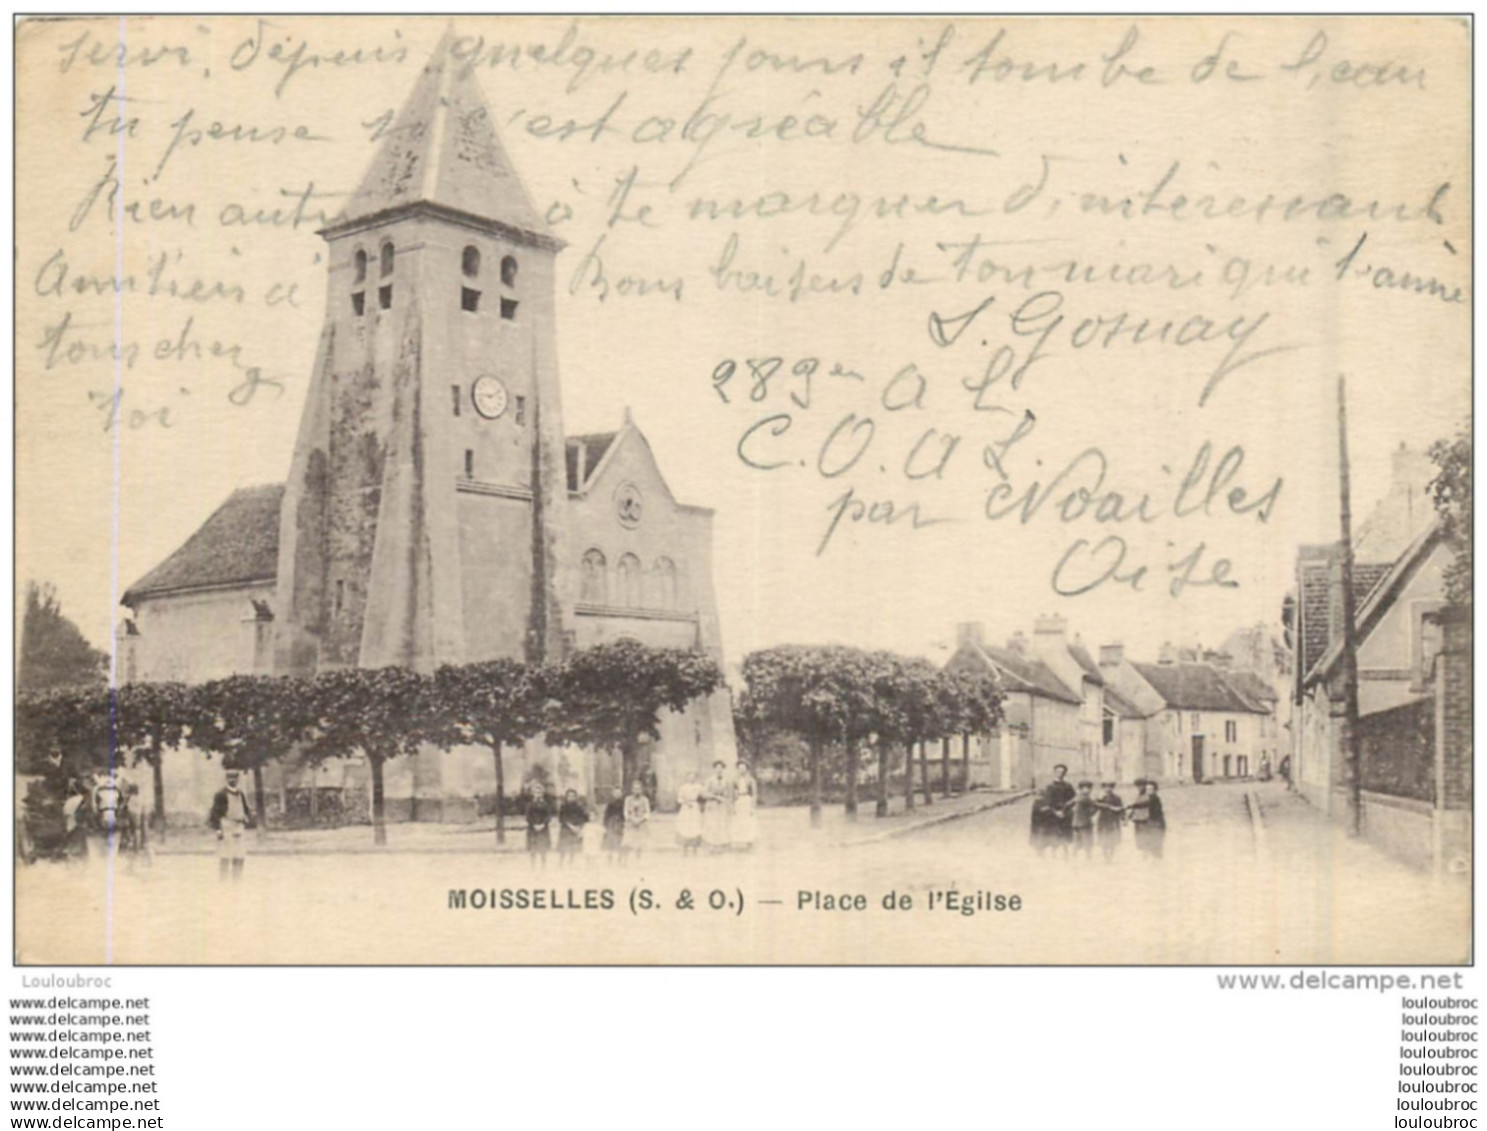 servi, depuis quelques jours il tombe de l'eau
tu pense si c'est agréable
Rien autre à te marquer d'intéressant
Bons baisers de ton mari qui t'aime
tous chez
toi
L. Gosnay
289em A L
C.O.A L.
par Noailles
Oise
MOISSELLES (S. & O.) — Place de l'Église
Louloubroc
www.delcampe.net
www.delcampe.net
www.delcampe.net
www.delcampe.net
www.delcampe.net
www.delcampe.net
www.delcampe.net
www.delcampe.net
www.delcampe.net
louloubroc
louloubroc
louloubroc
louloubroc
louloubroc
louloubroc
louloubroc
louloubroc